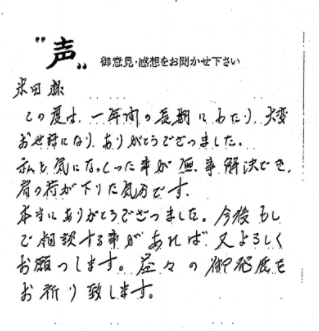 "声" 御意見・感想をお聞かせ下さい
米田様
この度は、一年間の長期にわたり、大変
お世話になり、ありがとうございました。
私も気になっていた事が無事解決でき、
肩の荷が下りた気分です。
本当にありがとうございました。今後もし
ご相談する事があれば又よろしく
お願いします。益々の御発展を
お祈り致します。